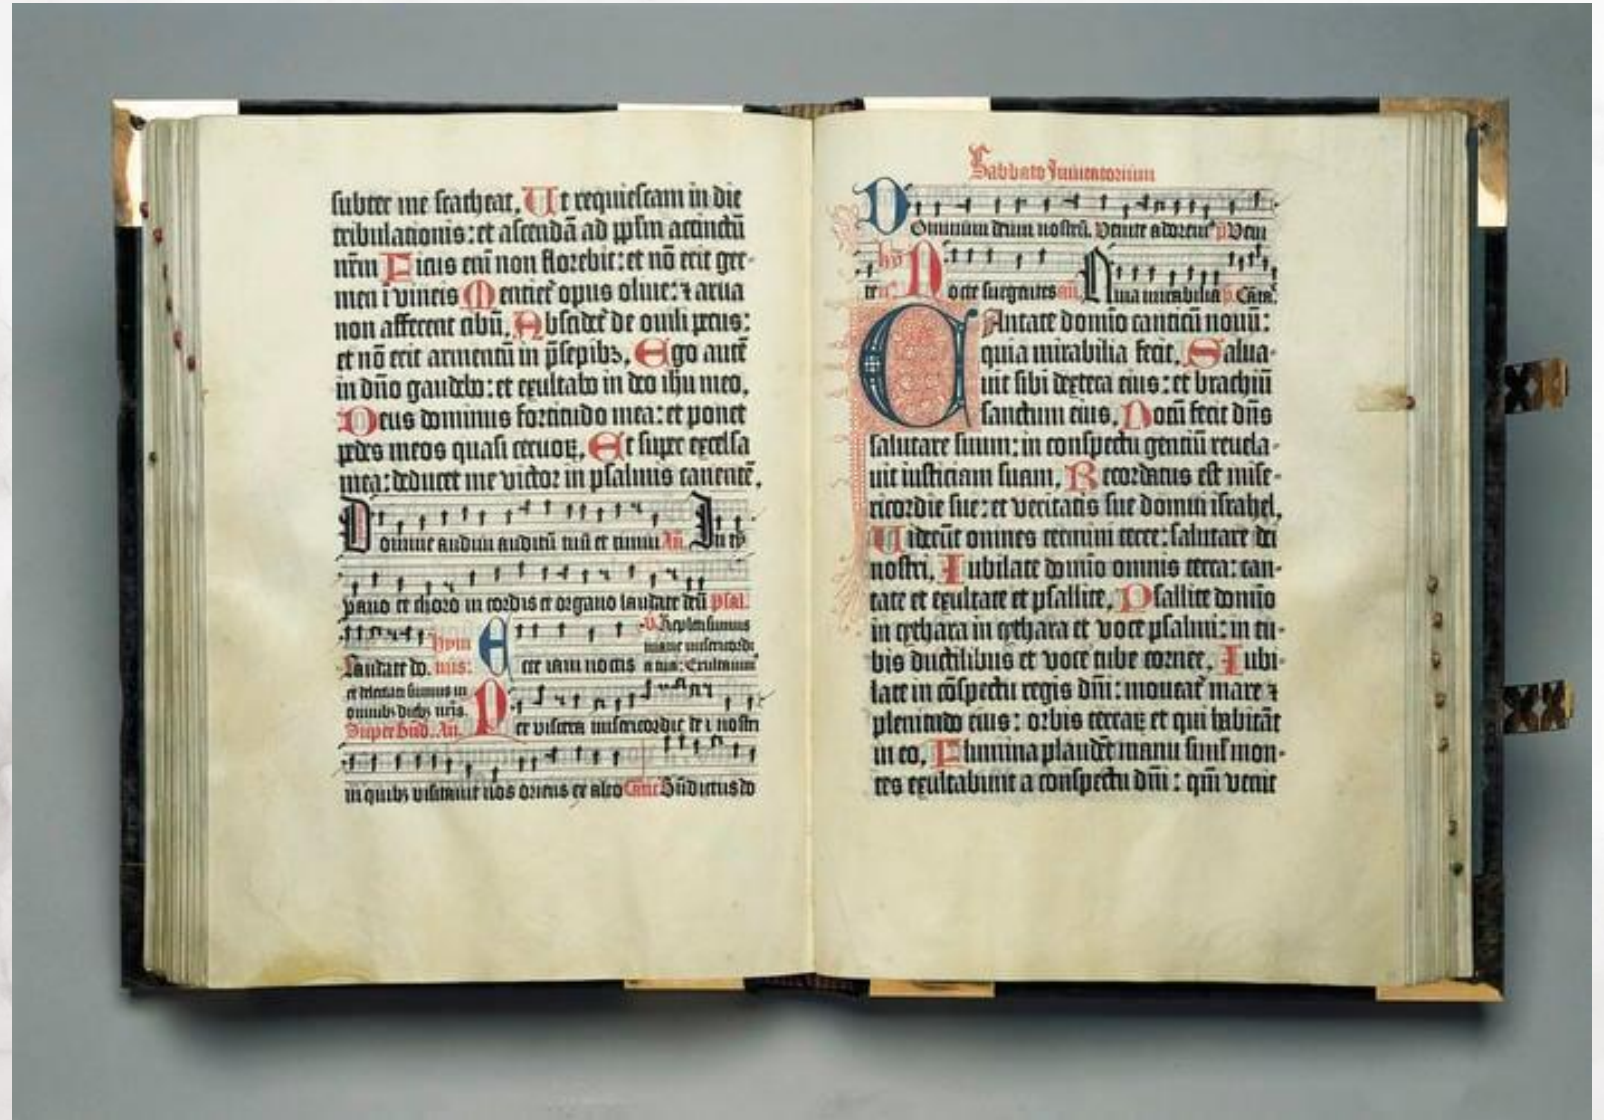 subter me scatheat. Ut requiescam in die
tribulationis: et ascendā ad pp̄lm accinctū
nr̄m Ficus eni non florebit: et nō erit ger-
men i vineis Mentiet᷑ opus oliue: ⁊ arua
non afferent cibū. Abscidet᷑ de ouili pecus:
et nō erit armentū in p̄sepibꝫ. Ego autē
in dn̄o gaudebo: et exultabo in deo ihu meo.
Deus dominus fortitudo mea: et ponet
pedes meos quasi ceruoꝝ. Et super excelsa
mea: deducet me victor in psalmis canentē.
Domine audiui auditū tuū et timui An. In ty
pano et choro in cordis et organo laudate deū psal.
Laudate do. hym nus: Ecce iam noctis
V. Repleti sumus
mane misericordi
a tua: Exultauim᷒
et delectati sumus in
omnibꝫ diebꝫ nr̄is.
Super bn̄d. An. Per viscera misericordie dei nostri
in quibꝫ visitauit nos oriens ex alto Cant Bn̄dictus do
Sabbato Inuitatorium
Dominum deum nostrū. Venite adorem᷒ p Veni
te hy᷒ Nocte surgentes an. Quia mirabilia p. Cāta.
CAntate domino canticū nouū:
quia mirabilia fecit. Salua-
uit sibi dextera eius: et brachiū
sanctum eius. Notū fecit dn̄s
salutare suum: in conspectu gentiū reuela-
uit iusticiam suam. Recordatus est mise-
ricordie sue: et veritatis sue domui israhel.
Uiderūt omnes termini terre: salutare dei
nostri. Iubilate domino omnis terra: can-
tate et exultate et psallite. Psallite domino
in cythara in cythara et voce psalmi: in tu-
bis ductilibus et voce tube cornee. Iubi-
late in cōspectu regis dn̄i: moueat᷑ mare ⁊
plenitudo eius: orbis terraꝝ et qui habitāt
in eo. Flumina plaudēt manu simł mon-
tes exultabunt a conspectu dn̄i: qm̄ venit